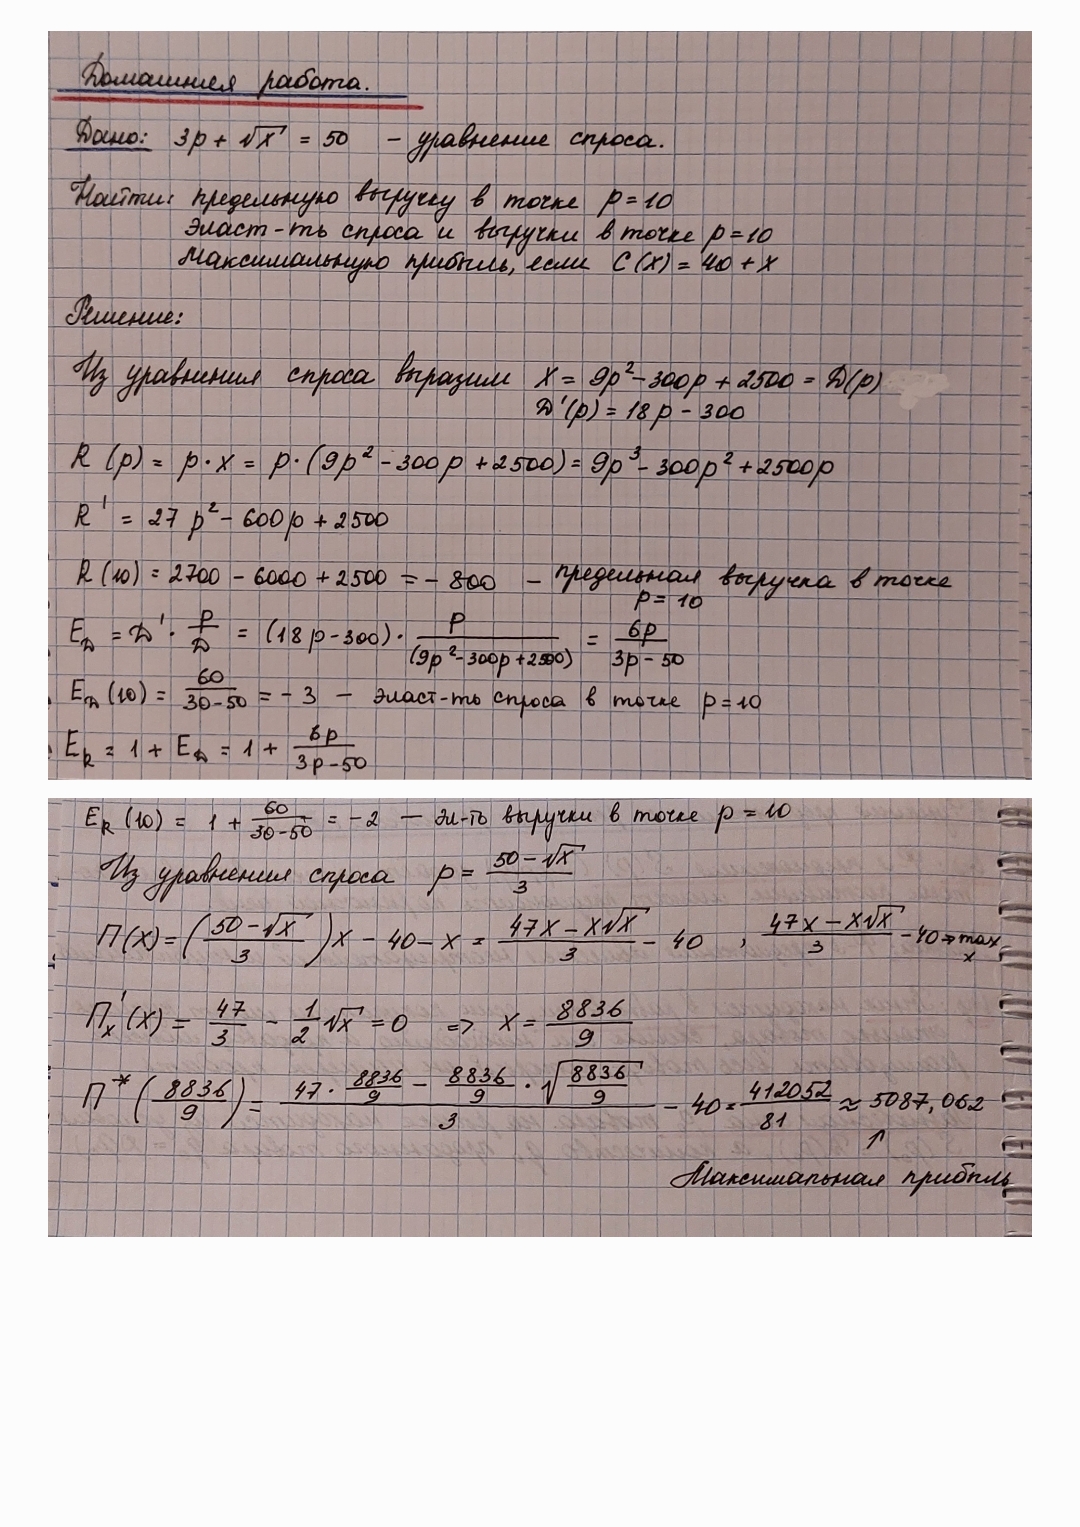 Домашняя работа.
Дано: 3p + √x = 50 – уравнение спроса.
Найти: предельную выручку в точке p = 10
эласт-ть спроса и выручки в точке p = 10
Максимальную прибыль, если C(x) = 40 + x
Решение:
Из уравнения спроса выразим x = 9p² - 300p + 2500 = D(p)
D'(p) = 18p - 300
R(p) = p·x = p·(9p² - 300p + 2500) = 9p³ - 300p² + 2500p
R' = 27p² - 600p + 2500
R(10) = 2700 - 6000 + 2500 = -800 – предельная выручка в точке
p = 10
E_D = D'·p/D = (18p - 300)·p/(9p² - 300p + 2500) = 6p/(3p - 50)
E_D(10) = 60/(30 - 50) = -3 – эласт-ть спроса в точке p = 10
E_R = 1 + E_D = 1 + 6p/(3p - 50)
E_R(10) = 1 + 60/(30 - 50) = -2 – эл-ть выручки в точке p = 10
Из уравнения спроса p = (50 - √x)/3
П(x) = ((50 - √x)/3)x - 40 - x = (47x - x√x)/3 - 40 , (47x - x√x)/3 - 40 → max x
П'x(x) = 47/3 - 1/2 √x = 0 => x = 8836/9
П*(8836/9) = (47·8836/9 - 8836/9·√(8836/9))/3 - 40 = 412052/81 ≈ 5087,062
↑
Максимальная прибыль